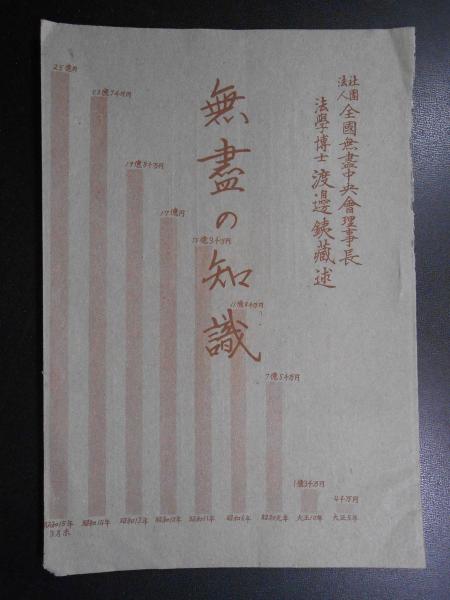 社團
法人 全國無盡中央會理事長
法學博士 渡邊銕藏述
無盡の知識
25億円
23億7千万円
19億8千万円
17億円
15億9千万円
7億5千万円
1億3千万円
4千万円
昭和15年
3月末
昭和14年
昭和13年
昭和12年
昭和11年
昭和6年
昭和元年
大正10年
大正5年